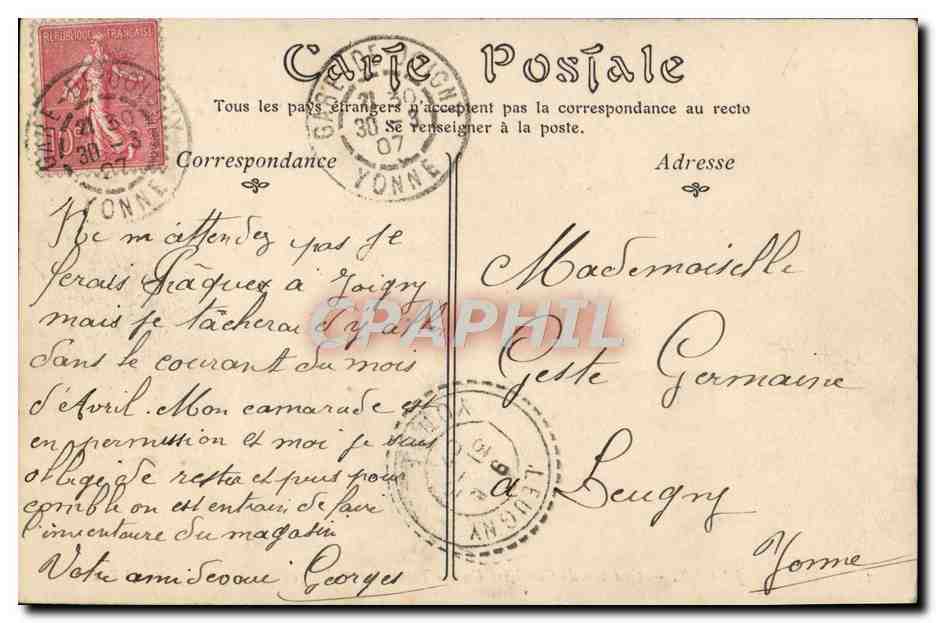 REPUBLIQUE FRANÇAISE
Carte Postale
Tous les pays étrangers n'acceptent pas la correspondance au recto
Se renseigner à la poste.
GARE DE JOIGNY
21 30
30 - 3
07
YONNE
GARE DE JOIGNY
21 30
30 - 3
07
YONNE
Correspondance
Ne m'attendez pas je
ferais Pâques à Joigny
mais je tâcherai d'y alle
dans le courant du mois
d'Avril. Mon camarade est
en permission et moi je suis
obligé de rester et puis pour
comble on est entrain de faire
l'inventaire du magasin
Votre ami dévoué Georges
Adresse
Mademoiselle
Geste Germaine
à Leugny
Yonne
LEUGNY
YONNE
CPAPHIL